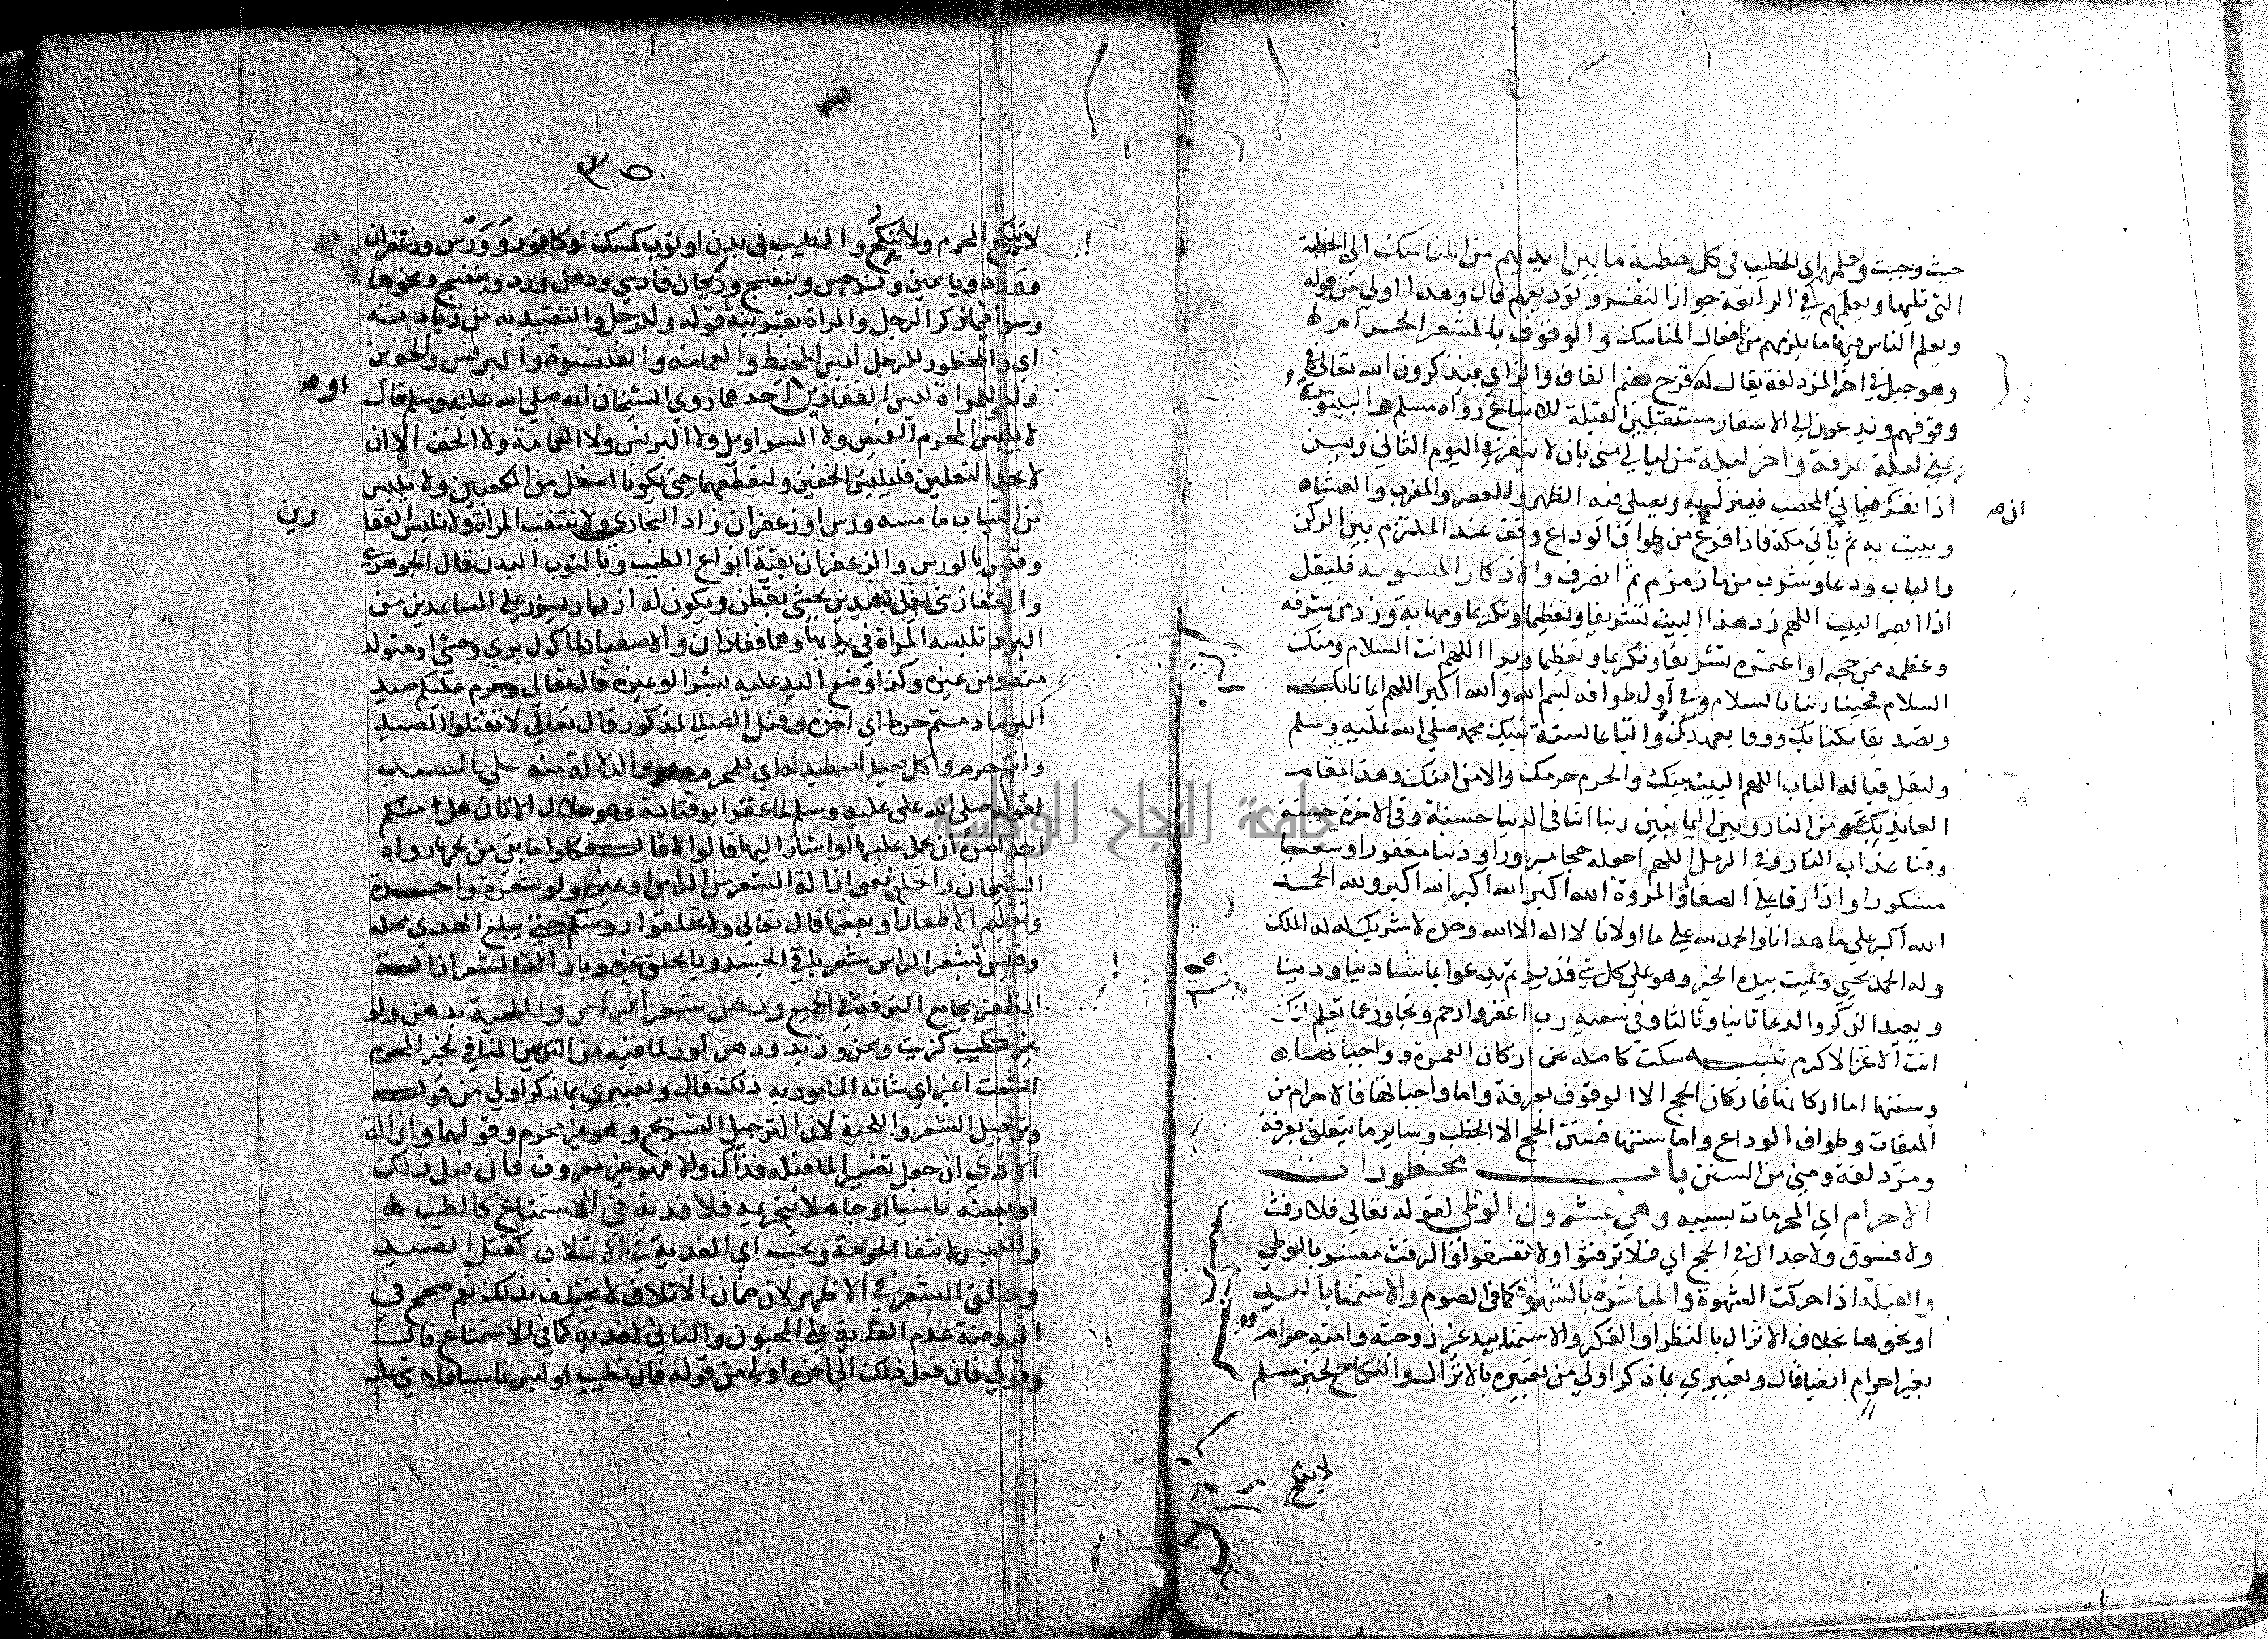 حيث وجبت ويعلمهم اي الخطيب في كل خطبة ما بين ايديهم من المناسك الي الخطبة
التي تليها ويعلمهم في الرابعة جواز النفر وتوديعهم قال وهذا اولي من قوله
ويعلم الناس فيها ما يلزمهم من افعال المناسك والوقوف بالمشعر الحرام
وهو جبل في اخر المزدلفة يقال له قزح بضم القاف والزاي فيذكرون الله تعالي في
وقوفهم ويدعون الي الاسفار مستقبلين القبلة للاتباع رواه مسلم والبيتوتة
بمني ليلة عرفة واخر ليلة من ليالي مني بان لا ينفر في اليوم الثاني ويسن
اذا نفر ان ياتي المحصب فينزل به ويصلي فيه الظهر والعصر والمغرب والعشاء
ويبيت به ثم ياتي مكة فاذا فرغ من طواف الوداع وقف عند الملتزم بين الركن
والباب ودعا وشرب من ما زمزم ثم انصرف والاذكار المسنونة فليقل
اذا ابصر البيت اللهم زد هذا البيت تشريفا وتعظيما وتكريما ومهابة وزد من شرفه
وعظمه ممن حجه او اعتمره تشريفا وتكريما وتعظيما وبرا اللهم انت السلام ومنك
السلام فحينا ربنا بالسلام وفي اول طوافه بسم الله والله اكبر اللهم ايمانا بك
وتصديقا بكتابك ووفا بعهدك واتباعا لسنة نبيك محمد صلي الله عليه وسلم
وليقل قبالة الباب اللهم البيت بيتك والحرم حرمك والامن امنك وهذا مقام
العايذ بك من النار وبين اليمانيين ربنا اتنا في الدنيا حسنة وفي الاخرة حسنة
وقنا عذاب النار وفي الرمل اللهم اجعله حجا مبرورا وذنبا مغفورا وسعيا
مشكورا واذا رقا علي الصفا والمروة الله اكبر الله اكبر الله اكبر ولله الحمد
الله اكبر علي ما هدانا والحمد لله علي ما اولانا لا اله الا الله وحده لا شريك له له الملك
وله الحمد يحيي ويميت بيده الخير وهو علي كل شي قدير ثم يدعوا بما شا دنيا ودينا
ويعيد الذكر والدعا ثانيا وثالثا وفي سعيه رب اغفر وارحم وتجاوز عما تعلم انك
انت الاعز الاكرم تنبيه سكت كاصله عن اركان العمرة وواجباتها
وسننها اما اركانها فاركان الحج الا الوقوف بعرفة واما واجباتها فالاحرام من
الميقات وطواف الوداع واما سننها فسنن الحج الا الخطب وساير ما يتعلق بعرفة
ومزدلفة ومني من السنن باب محظورات
الاحرام اي المحرمات بسببه وهي عشرون الوطي لقوله تعالي فلا رفث
ولا فسوق ولا جدال في الحج اي فلا ترفثوا ولا تفسقوا والرفث مفسر بالوطي
والقبلة اذا حركت الشهوة والمباشرة بالشهوة كما في الصوم والاستمنا باليد
او نحوها بخلاف الانزال بالنظر او الفكر والاستمنا بيد غير زوجته وامته حرام
بغير احرام ايضا قال وتعبيري بما ذكر اولي من تعبيره بالانزال والنكاح لخبر مسلم
لا ينكح
٣٥
لا ينكح المحرم ولا ينكح والتطيب في بدن او ثوب كمسك وكافور وورس وزعفران
وورد وياسمين ونرجس وبنفسج وريحان فارسي ودهن ورد وبنفسج ونحوها
وسوا فيما ذكر الرجل والمراة بقرينة قوله وللرجل والتقييد به من زيادته
اي والمحظور للرجل لبس المخيط والعمامة والقلنسوة والبرنس والخفين
وللمراة لبس القفازين او احدهما روي الشيخان انه صلي الله عليه وسلم قال
لا يلبس المحرم القميص ولا السراويل ولا البرنس ولا العمامة ولا الخف الا ان
لا يجد النعلين فليلبس الخفين وليقطعهما حتي يكونا اسفل من الكعبين ولا يلبس
من الثياب ما مسه ورس او زعفران زاد البخاري ولا تنتقب المراة ولا تلبس القفا
زين
وقيس بالورس والزعفران بقية انواع الطيب وبالثوب البدن قال الجوهري
والقفاز شي يعمل لليدين يحشي بقطن ويكون له ازرار يزر علي الساعدين من
البرد تلبسه المراة في يديها وهما قفازان والاصطياد لماكول بري وحشي او متولد
منه ومن غيره وكذا وضع اليد عليه بشرا او غيره قال تعالي وحرم عليكم صيد
البر ما دمتم حرما اي اخذه وقتل الصيد المذكور قال تعالي لا تقتلوا الصيد
وانتم حرم واكل صيد اصطيد له اي للمحرم والدلالة منه علي الصيد
لقوله صلي الله علي عليه وسلم لما عقر ابو قتادة وهو حلال الاتان هل منكم
احد امره ان يحمل عليها او اشار اليها قالوا لا قال فكلوا ما بقي من لحمها رواه
الشيخان والحلق يعني ازالة الشعر من الراس او غيره ولو شعرة واحدة
وتقليم الاظفار او بعضها قال تعالي ولا تحلقوا روسكم حتي يبلغ الهدي محله
وقيس بشعر الراس شعر باقي الجسد وبالحلق غيره وبازالة الشعر ازالة
الظفر بجامع الترفه في الجميع ودهن شعر الراس واللحية بدهن ولو
غير مطيب كزيت وسمن وزبد ودهن لوز لما فيه من التزين المنافي لخبر المحرم
اشعث اغبر اي شانه المامور به ذلك قال وتعبيري بما ذكر اولي من قوله
وترجيل الشعر واللحية لان الترجيل التسريح وهو غير محرم وقولهما وازالة
الاذي ان جعل تفسيرا لما قبله فذاك والا فهو غير معروف فان فعل ذلك
او بعضه ناسيا او جاهلا بتحريمه فلا فدية في الاستمتاع كالطيب
واللبس لانتفا الحرمة ويجب اي الفدية في الاتلاف كقتل الصيد
وحلق الشعر في الاظهر لان ضمان الاتلاف لا يختلف بذلك نعم صحح في
الروضة عدم الفدية علي المجنون والثاني لا فدية كما في الاستمتاع قال
وقولي فان فعل ذلك الي اخره اولي من قوله فان تطيب او لبس ناسيا فلا شي عليه